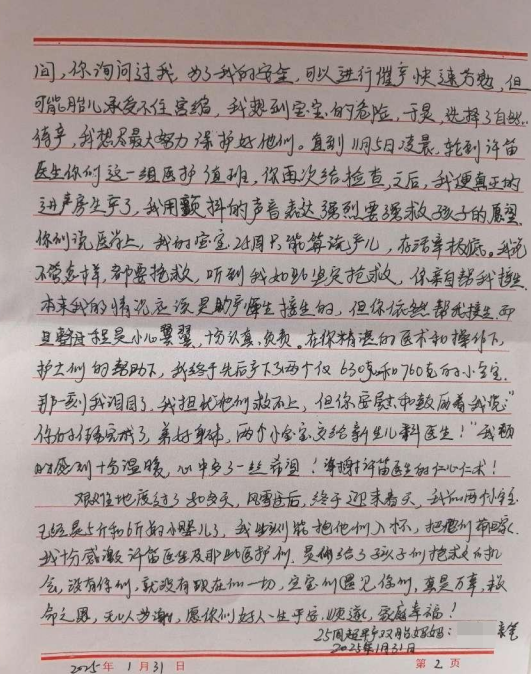 间，你询问过我，为了我的安全，可以进行催产快速方便，但
可能胎儿承受不住宫缩，我想到宝宝的危险，于是选择了自然
待产，我想尽最大努力保护好他们。直到11月5日凌晨，轮到许笛
医生你们这一组医护值班，你再次给检查之后，我便真正的
进产房生产了，我用颤抖的声音表达强烈要强救孩子的愿望
你们说医学上，我的宝宝25周只能算流产儿，存活率极低。我说
不管怎样，都要抢救，听到我如此坚定抢救，你亲自帮我接生
本来我的情况应该是助产医生接生的，但你依然帮我接生而
且整过程是小心翼翼，十分认真、负责。在你精湛的医术和操作下
护士们的帮助下，我终于先后产下了两个仅630克和760克的小宝宝
那一刻我泪目了，我担忧他们救不上，但你安慰和鼓励着我说："
你的任务完成了，养好身体，两个小宝宝交给新生儿科医生！"我顿
时感到十分温暖，心中多了一丝希望！谢谢许笛医生的仁心仁术！
艰难地度过了80多天，风雪过后，终于迎来春天，我们两个小宝
已经是5斤和6斤的小婴儿了，我也终于能把他们入怀，把他们带回家
我十分感激许笛医生及那些医护们，是你们给了孩子们抢救的机
会，没有你们，就没有现在的一切，宝宝们遇见你们，真是万幸，救
命之恩，无以为谢，愿你们好人一生平安、顺遂，家庭幸福！
25周超早产双胎妈妈：亲笔
2025年1月31日
2025年1月31日 第2页